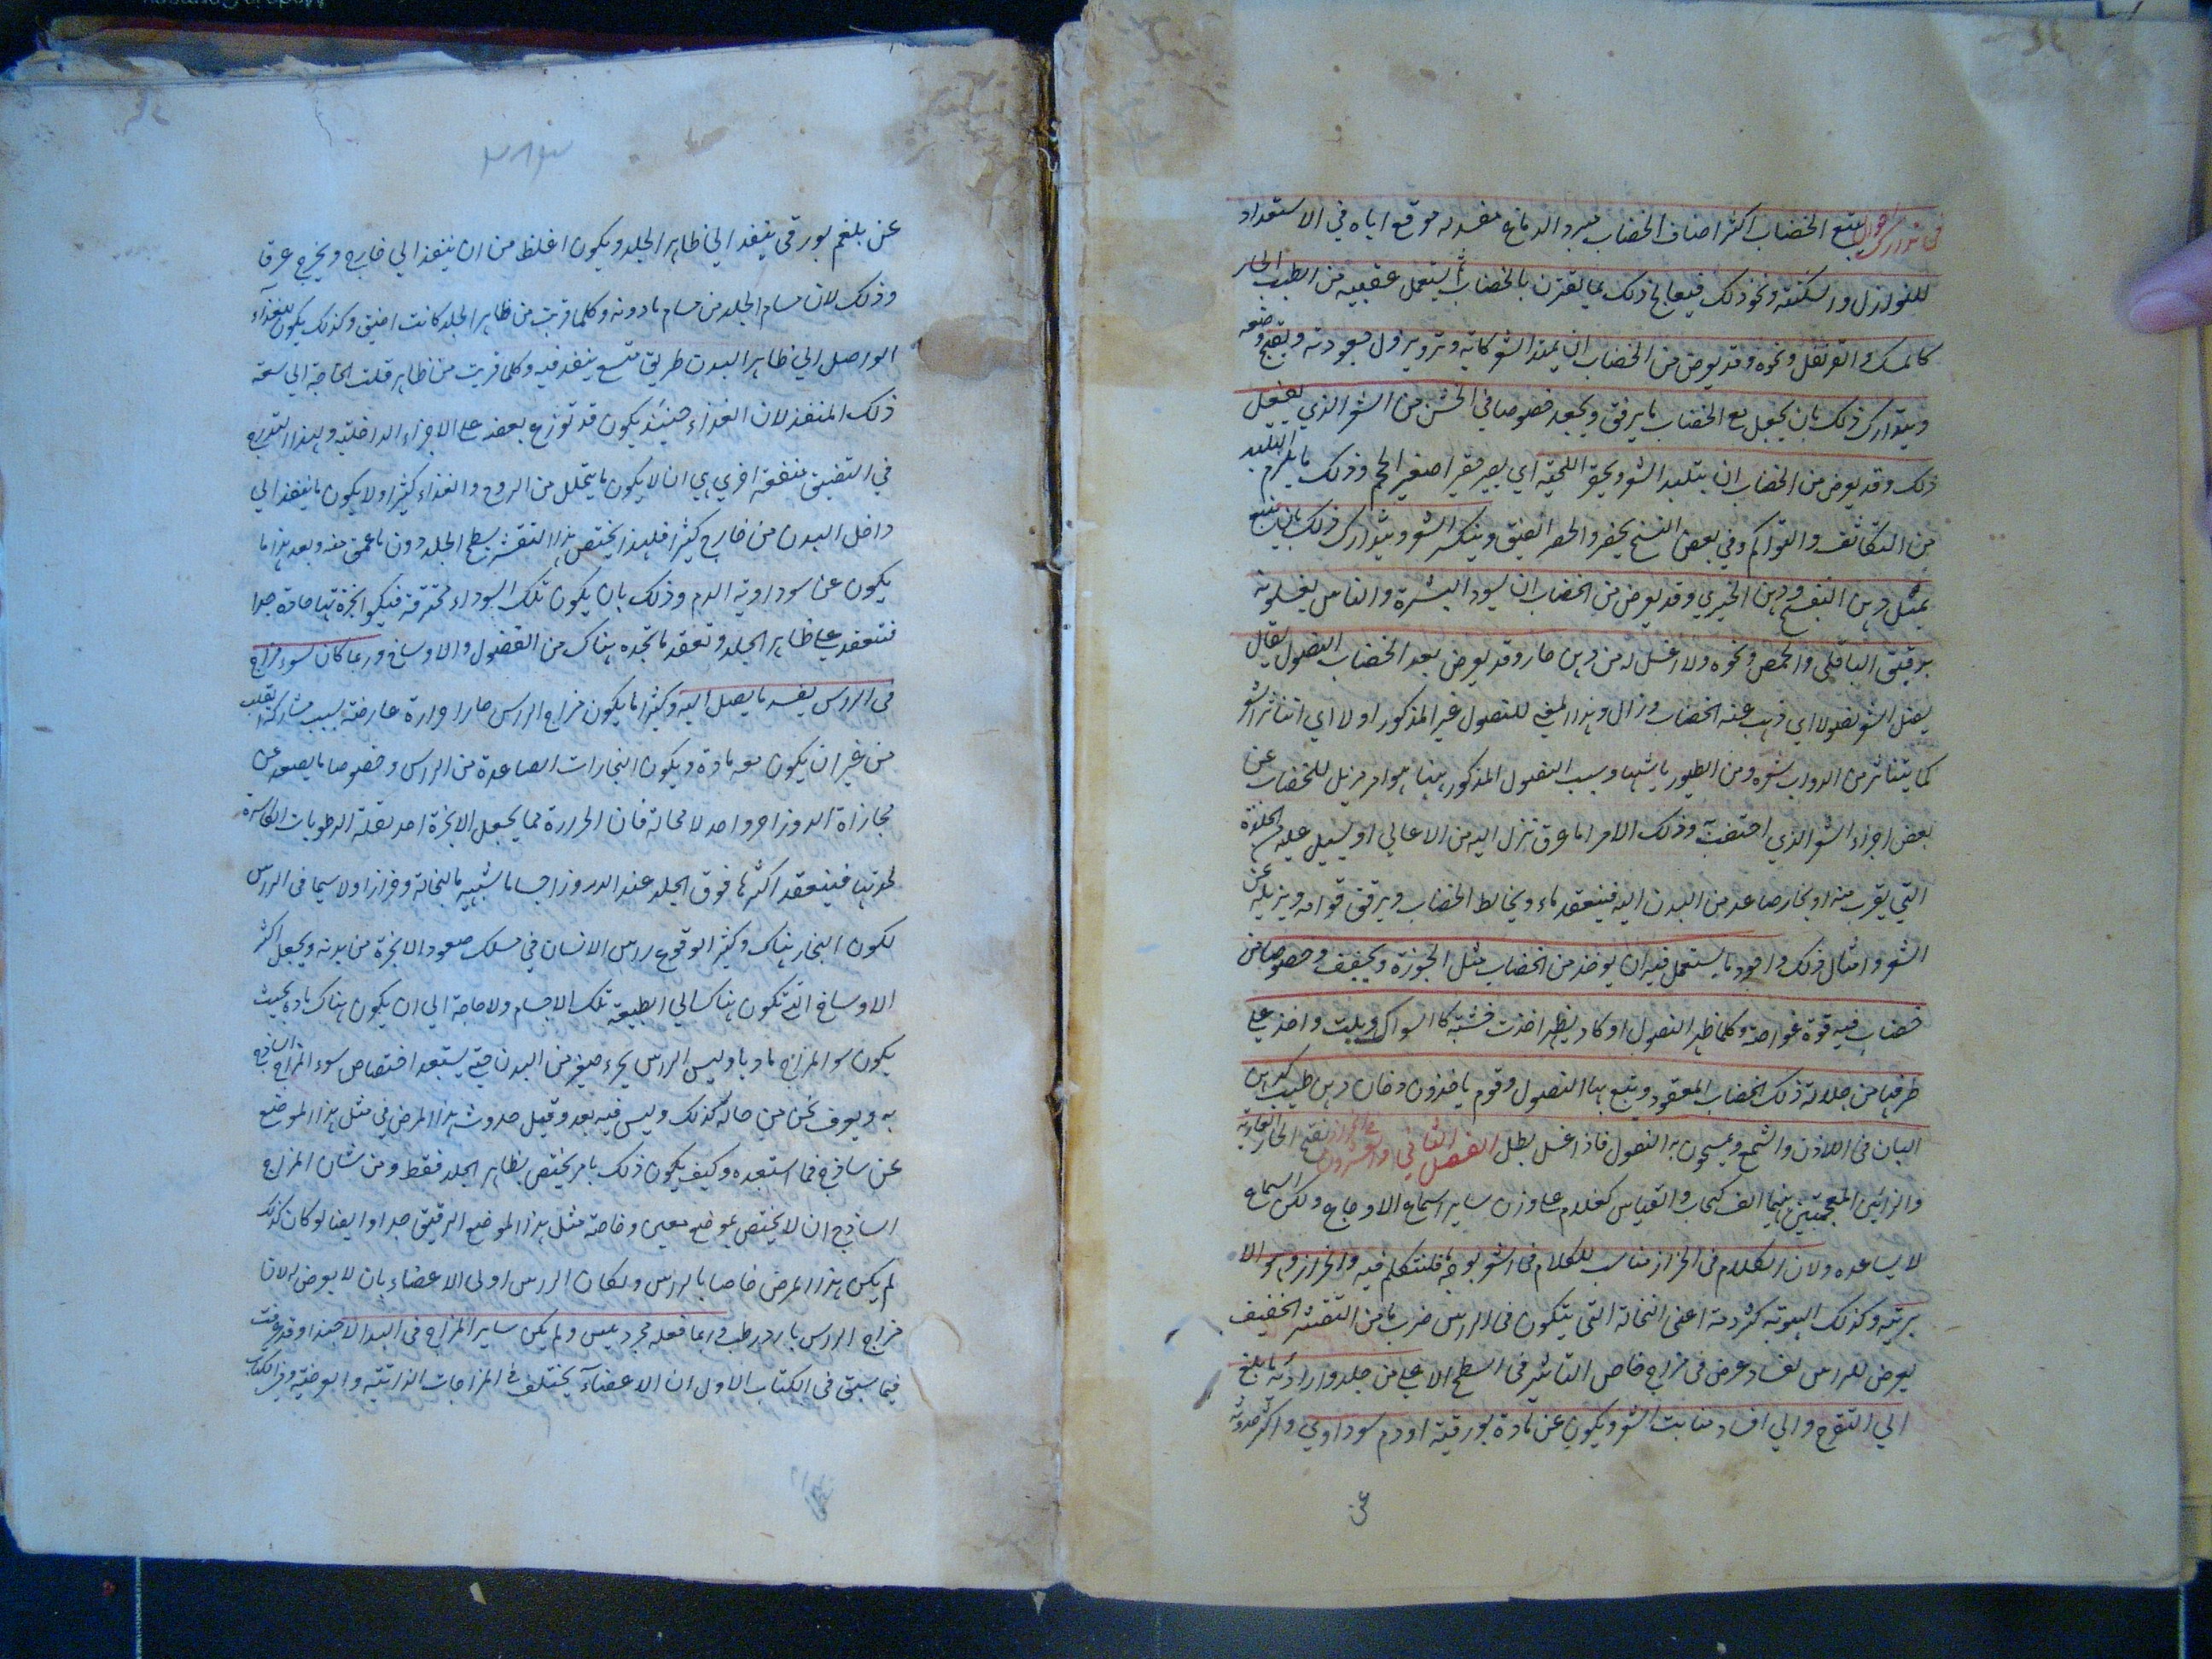 في تدارك احوال يتبع الخضاب اكثر اصناف الخضاب مبرد الدماغ مفسد له موقع اياه في الاستعداد
للنوازل والسكتة ونحو ذلك فيعالج ذلك بما يقترن بالخضاب ثم يستعمل عقيبه من الطيب الحار
كالمسك والقرنفل ونحوه وقد يعرض من الخضاب ان يمتد الشعر كانه وتر ويزول جعودته ويقبح وضعه
ويتدارك ذلك بان يجعل مع الخضاب ما يرقق ويجعد خصوصا في الخشن من الشعر الذي يفعل
ذلك وقد يعرض من الخضاب ان يتلبد الشعر ويحقر اللحية اي يصير حقيرا صغير الحجم وذلك ما يلزم التلبد
من التكاثف والتراكم وفي بعض النسخ يحصر والحصر الضيق وينكسر الشعر ويتدارك ذلك بان يتبع
بمثل دهن البنفسج ودهن الخيري وقد يعرض من الخضاب ان يسود البشرة والناس يغسلونه
بدقيق الباقلى والحمص ونحوه ولا اغسل له من دهن حار وقد يعرض بعد الخضاب النصول يقال
نصل الشعر نصولا اي ذهب عنه الخضاب وزال وهذا المعنى للنصول غير المذكور اولا اي انتثار الشعر
كما يتناثر من الدواب شعره ومن الطيور ريشها وسبب النصول المذكور ههنا هو امر مزيل للخضاب عن
بعض اجزاء الشعر الذي اختضب وذلك الامر اما عرق تنزل اليه من الاعالي او يسيل عليه من الجلدة
التي يقرب منه او بخار صاعد من البدن اليه فينعقد ماء ويخالط الخضاب ويرقق قوامه ويزيله عن
الشعر وامثال ذلك واجود ما يستعمل فيه ان يوخذ من الخضاب مثل الجوزة ويجفف وخصوصا من
خضاب فيه قوة غواصة وكلما ظهر النصول او كاد يظهر اخذت خشبة كالسواك وبلت واخذ على
طرفها من حلالة ذلك الخضاب المعقود ويتبع بها النصول وقوم ياخذون دخان دهن طيب كدهن
البان في اللاذن والشمع ويمسحون به النصول فاذا غسل بطل الفصل الثاني والعشرون في الحزاز بفتح الحاء المهملة
والزائين المعجمتين بينهما الف كسحاب والقياس كغلام على وزن سائر اسماء الاوجاع ولكن السماع
لا يساعده ولان الكلام في الحزاز مناسب للكلام في الشعر بوجه فلنتكلم فيه والحزاز وهو الا
برية وكذلك الهبرية كشرذمة اعني النخالة التي يتكون في الراس ضرب ما من التقشر الخفيف
يعرض للراس لفساد عرض في مزاج خاص التاثير في السطح الاعلى من جلده وارادئه ما بلغ
الى التقرح والى افساد منابت الشعر ويكون عن مادة بورقية او دم سوداوي واكثر حدوثه
عن
عن بلغم بورقي ينفد الى ظاهر الجلد ويكون اغلظ من ان ينفذ الى خارج ويخرج عرقا
وذلك لان مسام الجلد من مسام ما دونه وكلما قربت من ظاهر الجلد كانت اضيق وكذلك يكون للغذاء
الواصل الى ظاهر البدن طريق متسع ينفد فيه وكلما قربت من ظاهر قلت الحاجة الى سعة
ذلك المنفذ لان الغذاء حينئذ يكون قد توزع بعضه على الاجزاء الداخلية ولهذا التدريج
في التضيق منفعة اخرى هي ان لا يكون ما يتحلل من الروح والغذاء كثيرا ولا يكون ما ينفذ الى
داخل البدن من خارج كثيرا فلهذا يختص هذا التقشر بسطح الجلد دون ما عمق منه وبعد هذا ما
يكون عن سوداوية الدم وذلك بان يكون تلك السوداء محترقة فيكون ابخرتها حادة جدا
فتنعقد على ظاهر الجلد وتعقد ما تجده هناك من الفضول والاوساخ وربما كان لسوء مزاج
في الراس يفسد ما يصل اليه وكثيرا ما يكون مزاج الراس حارا حرارة عارضة بسبب مشاركة القلب
من غير ان يكون معه مادة ويكون البخارات الصاعدة من الراس وخصوصا ما يصعد من
محاذاة الدروز امر واحد لا محالة فان الحرارة مما يجعل الابخرة احد لقلة الرطوبات الكاسرة
لحدتها فينعقد اكثرها فوق الجلد عند الدروز اجساما شبيه بالنخالة وحزازا ولا سيما في الراس
لكون البخار هناك وكثير الوقوع لراس الانسان في مسلك صعود الابخرة من بدنه ويجعل اكثر
الاوساخ التي تكون هناك الى الطبيعة تلك الاجسام ولا حاجة الى ان يكون هناك مادة بحيث
يكون سوء المزاج ماديا وليس الراس بجزء صغير من البدن حتى يستبعد اختصاص سوء المزاج الساذج
به ويعرف نحن من حاله كذلك وليس فيه بعد وقيل حدوث هذا المرض في مثل هذا الموضع
عن ساذج فما استبعده وكيف يكون ذلك بامر يختص بظاهر الجلد فقط ومن شان المزاج
الساذج ان لا يختص بموضع معين وخاصة مثل هذا الموضع الرقيق جدا وايضا لو كان كذلك
لم يكن هذا المرض خاصا بالراس ولكان الراس اولى الاعضاء بان لا يعرض له لان
مزاج الراس بارد رطب وربما فعله مجرد يبس ولم يكن سائر المزاج في البدن الا جيدا وقد عرفت
فيما سبق في الكتاب الاول ان الاعضاء يختلف في المزاجات الذاتية والعرضية وفي الكتاب